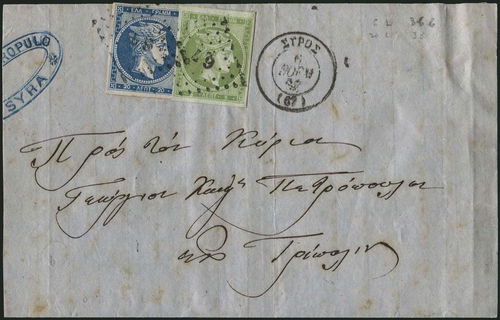 ROPULO
SYRA
ΕΛΛ. ΓΡΑΜΜ.
20 ΛΕΠΤ. 20
67
ΣΥΡΟΣ
6
ΝΟΕΜ
(67)
Πρός τόν Κύριον
Γεώργιον Πετρόπουλον
εις Τρίπολιν